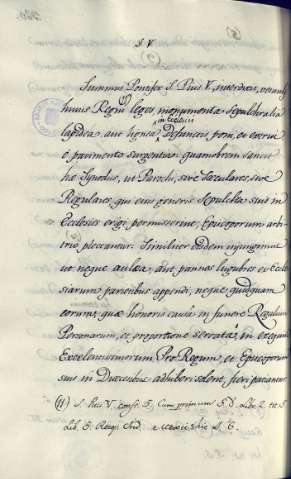 § V
Summus Pontifex S. Pius V, interdicit, vetant
huius Regni leges, monumenta sepulchralia
in Ecclesiis
lapidea, aut lignea defunctis poni, ex eorum
è pavimento surgentia: quamobrem Sancta
hæc Synodus, ut Parochi, sivè Seculares, sivè
Regulares, qui eius generis Sepulchra suis in
Ecclesiis erigi permisserint, Episcoporum arbi-
trio plectantur. Similiter eisdem injungimus
ut neque aulæa, aut pannos lugubres ex Eccle-
siarum parietibus appendi, neque quidquam
eorum, quæ honoris causa in funere Regalium
Personarum, et proportione servata, in exequiis
Excelentissimorum Pro Regum, et Episcoporum
sui in Diœcesibus adhiberi solent, fieri patiantur.
(11) S. Pius V Const. 3. Cum primum § Lib. 2 tt 5
Lib. Recop. Ind. e Mexic. hic § 6.